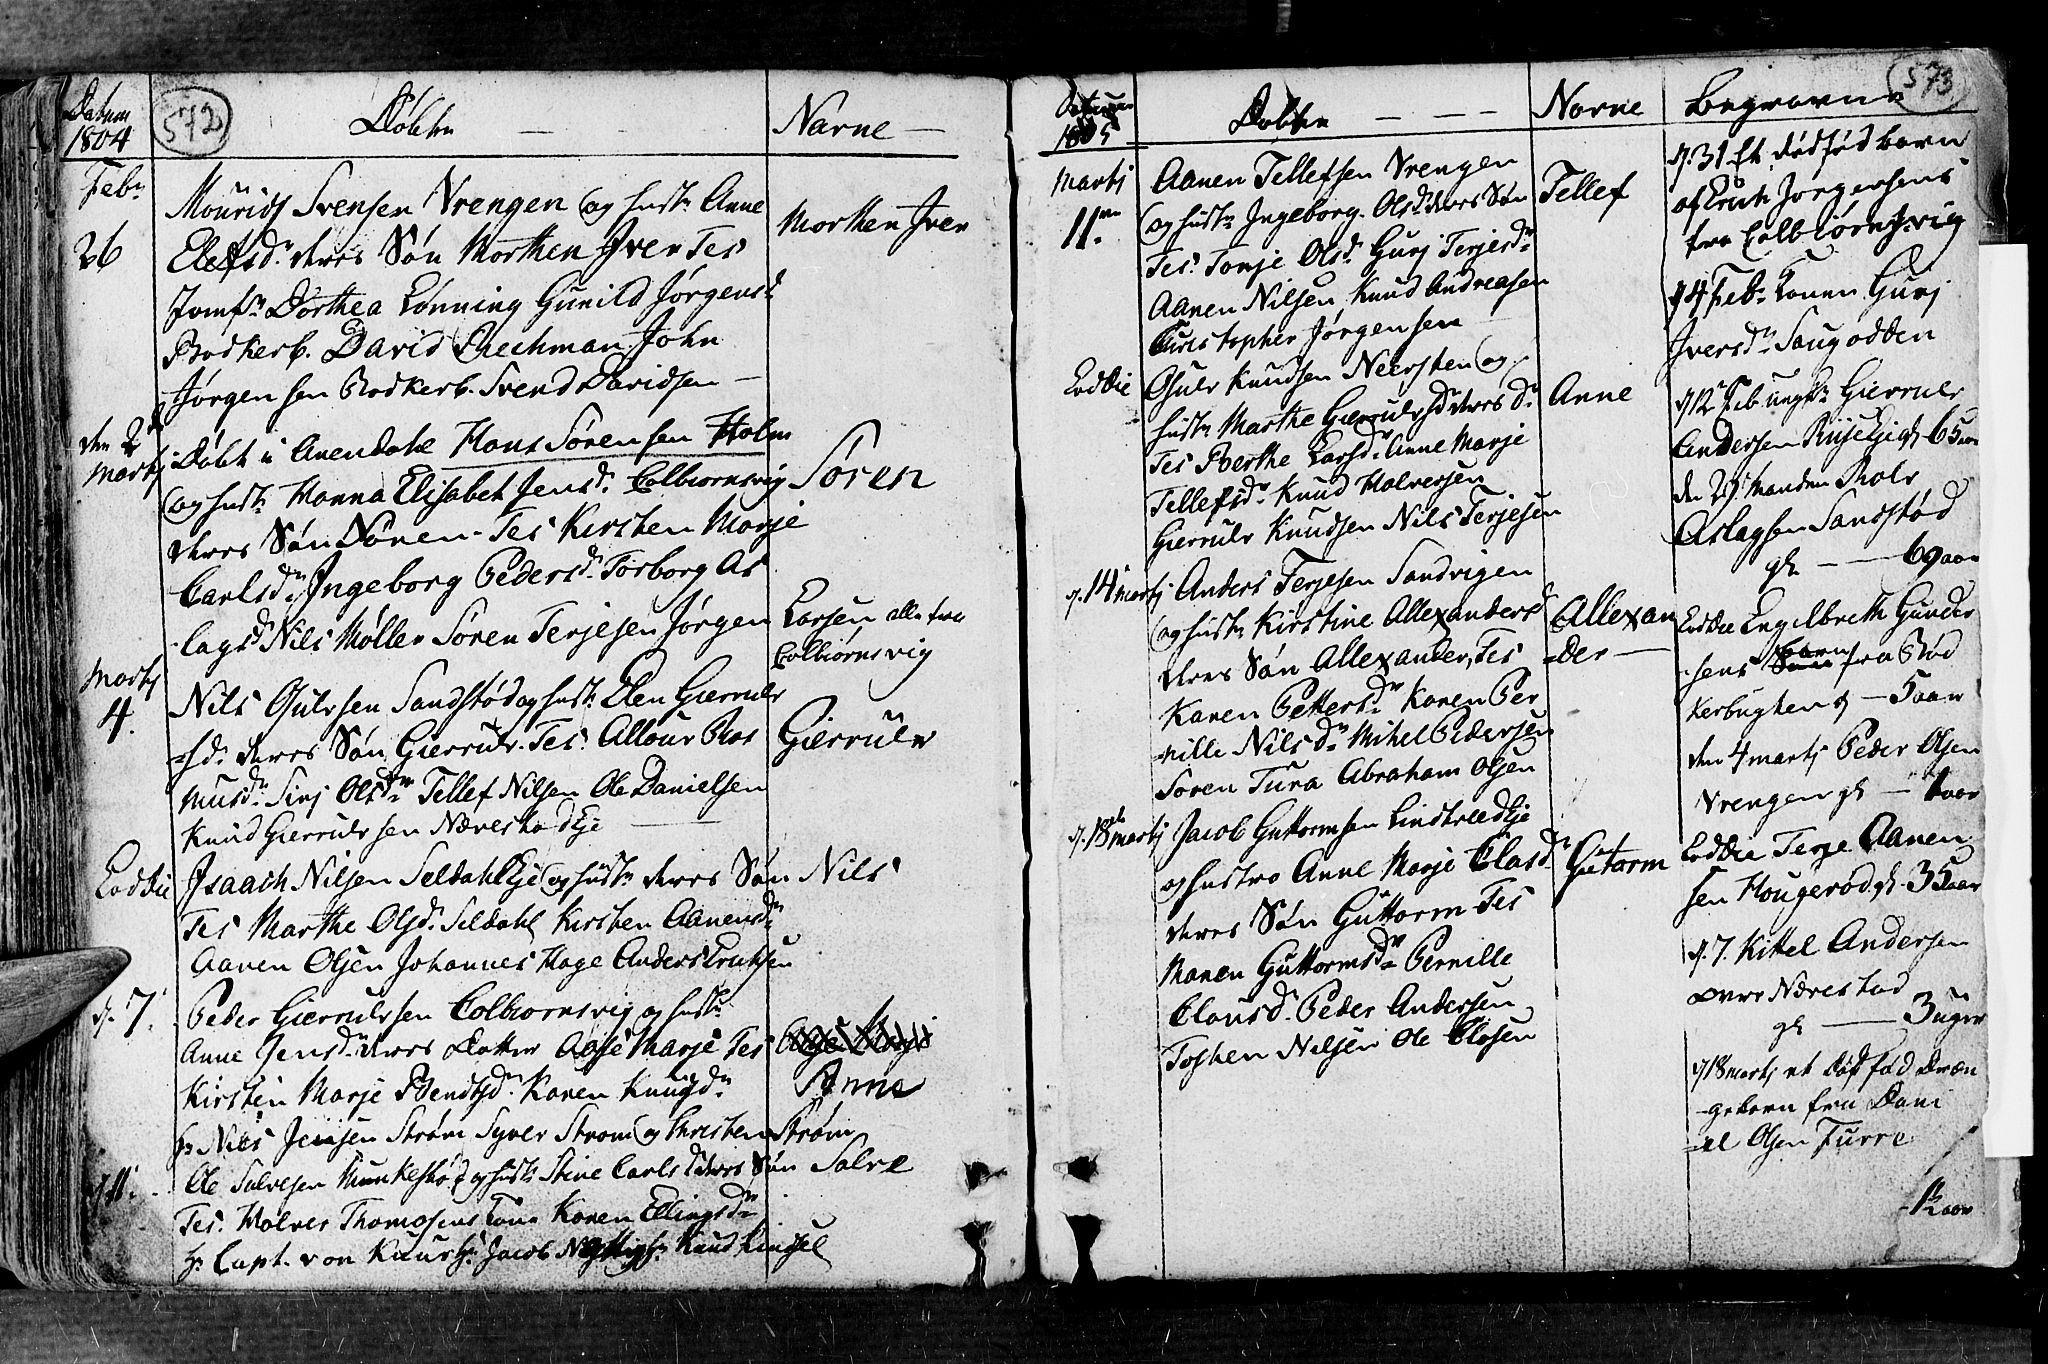 Datum
1804
572
Døbte
Navne
Febr
26
Mouridz Svensen Vrengen og hustr Anne
Elefsdr deres Søn Morthen Iver Tes
Jomfr Dorthea Lønning Gunild Jørgensd
Bodkerb. David Bechman John
Jørgensen Bodkerb. Svend Davidsen
Morthen Iver
den 2
Martj
Døbt i Arendahl Hans Sørensen Holm
og hustr Hanna Elisabet Jensdr Colbiornsvig
deres Søn Søren. Tes Kirsten Marje
Carlsdr Ingeborg Pedersdr Torborg As
lagsdr Nils Møller Søren Terjesen Jørgen
Søren
Larsen alle fra
Colbiørnsvig
Martj
4.
Nils Gulvsen Sandstød og hustr Elen Gierrulv
sdr deres Søn Gierrulv. Tes. Allour Ras
musdr Sirj Olsdr Tellef Nilsen Ole Danielsen
Knud Gierrulvsen Nærestad Eje
Gierrulv
Eoddie
Isaach Nilsen Seldahl Eje og hustr deres Søn
Tes Marthe Olsdr Seldahl Kirsten Aanensdr
Aanen Olsen Johannes Hage Anders Eruksen
Nils
d. 7.
Peder Gierrulvsen Colbiornsvig og hustr
Anne Jensdr deres Datter Aase Marje Tes
Kirsten Marje Bendtsdr Karen Knudsdr
hr Nils Jensen Strøm Syver Strøm og Christen Strøm
Anne
d 11.
Ole Salvesen Munkestød og hustr Stine Carlsdr deres Søn
Tes. Halvor Thomasens kone Karen Ellingsdr
hr Capt. von Knur hr Jacob hr Knud
Salve
573
Datum
1805
Døbte
Navne
Begravne
Martj
11te
Aanen Tellefsen Vrengen
og hustr Ingeborg Olsdr deres Søn
Tes. Tonje Olsdr Gurj Terjesdr
Aanen Nilsen Knud Andreasen
Christopher Jørgensen
Tellef
Eoddie
Gulv Knudsen Neersten og
hustr Marthe Gierrulvsdr deres dr
Tes Berthe Larsdr Anne Marje
Tellefsdr Knud Halvorsen
Gierrulv Knudsen Nils Terjesen
Anne
d. 14 martj
Anders Terjesen Sandvigen
og hustr Kirstine Allexandersd
deres Søn Allexander, Tes
Karen Pettersdr Karen Per
nille Nilsdr Mikel Pedersen
Søren Tura Abraham Olsen
Allexan
der
d. 18 martj
Jacob Guttormsen Lindtveed Eje
og hustro Anne Marje Clasdr
deres Søn Guttorm Tes
Maren Guttormsdr Pernille
Clausdr Peder Andersen
Tosten Nilsen Ole Closen
Gutorm
d. 31 Et dødfød barn
af Knut Jørgensens
fra Colbiørnsvig
d 4 Febr Konen Gurj
Iversdr Saugodden
d 12 Feb ungk Gierrulv
Andersen Riise Eje gl 65 aar
den 29 Manden Rolv
Aslagsen Sandstød
gl — 69 aar
Eoddie Engelbreth Gunder
sens barn fra Bød
kerbugten gl — 5 aar
den 4 martj Peder Olsen
Vrengen gl — 1 aar
Eoddie Terje Aanen
sen Hougerød gl 35 aar
d. 7. Kittel Andersen
øvre Nærestad
gl — 3 uger
d 18 martj et dødfød dren
gebarn fra Dani
el Olsen Furre